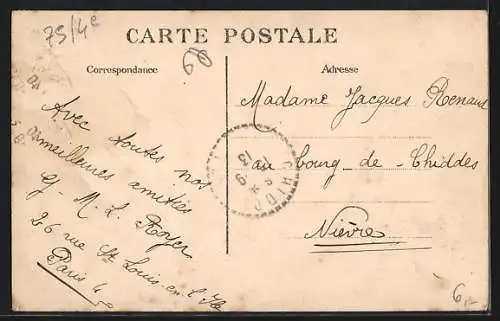 75/4e
60
CARTE POSTALE
Correspondance
Adresse
Avec toutes nos
meilleures amitiés
G. M. L. Royer
26 rue St Louis-en-l'Ile
Paris 4e
Madame Jacques Renaud
au bourg-de-Chiddes
Nièvre
CHIDD
13
6,-